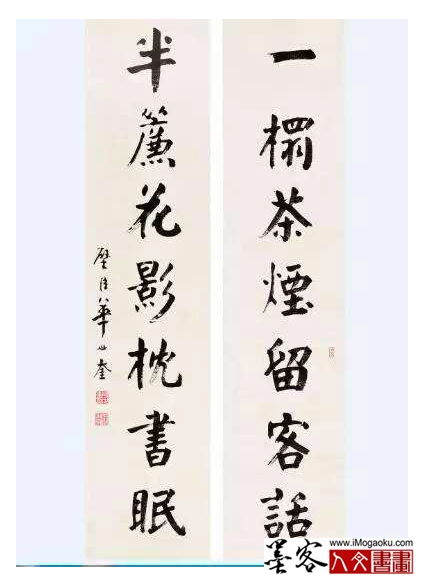 一榻茶煙留客話
半簾花影枕書眠
璧臣華世奎
www.iMogaoku.com
墨客人文書畫